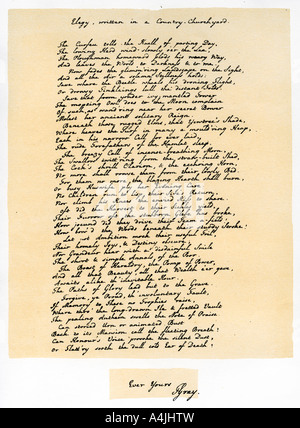 Elegy, written in a Country Churchyard.
The Curfew tolls the Knell of parting Day,
The lowing Herd wind slowly o'er the Lea,
The Plowman homeward plods his weary Way,
And leaves the World to Darkness & to me.
Now fades the glimm'ring Landscape on the Sight,
And all the Air a solemn Stillness holds;
Save where the Beetle wheels his droning Flight,
Or drowsy Tinklings lull the distant Folds.
Save that from yonder ivy-mantled Tower
The mopeing Owl does to the Moon complain
Of such, as wand'ring near her secret Bower
Molest her ancient solitary Reign.
Beneath those rugged Elms, that Yewtree's Shade,
Where heaves the Turf in many a mould'ring Heap,
Each in his narrow Cell for ever laid,
The rude Forefathers of the Hamlet sleep.
The breezy Call of incense-breathing Morn,
The Swallow twitt'ring from the straw-built Shed,
The Cock's shrill Clarion, & the echoing Horn,
No more shall rouse them from their lowly Bed.
For them no more the blazing Hearth shall burn,
Or busy Huswife ply her Evening Care;
No Children run
Or climb
Oft did the
Their Furrow
How jocund did they drive their Team
How bow'd the Woods beneath their sturdy Stroke!
Let not Ambition mock their useful Toil,
Their homely Joys, & Destiny obscure;
Nor Grandeur hear with a disdainful Smile
The short & simple Annals of the Poor.
The Boast of Heraldry, the Pomp of Power,
And all that Beauty, all that Wealth e'er gave,
Awaits alike th' inevitable Hour.
The Paths of Glory lead but to the Grave.
Forgive, ye Proud, th' involuntary Fault,
If Memory to These no Trophies raise,
Where thro' the long-drawn Ile & fretted Vault
The pealing Anthem swells the Note of Praise.
Can storied Urn or animated Bust
Back to its Mansion call the fleeting Breath?
Can Honour's Voice provoke the silent Dust,
Or Flatt'ry sooth the dull cold Ear of Death?
Ever Yours
TGray.
alamy
A4JHTW